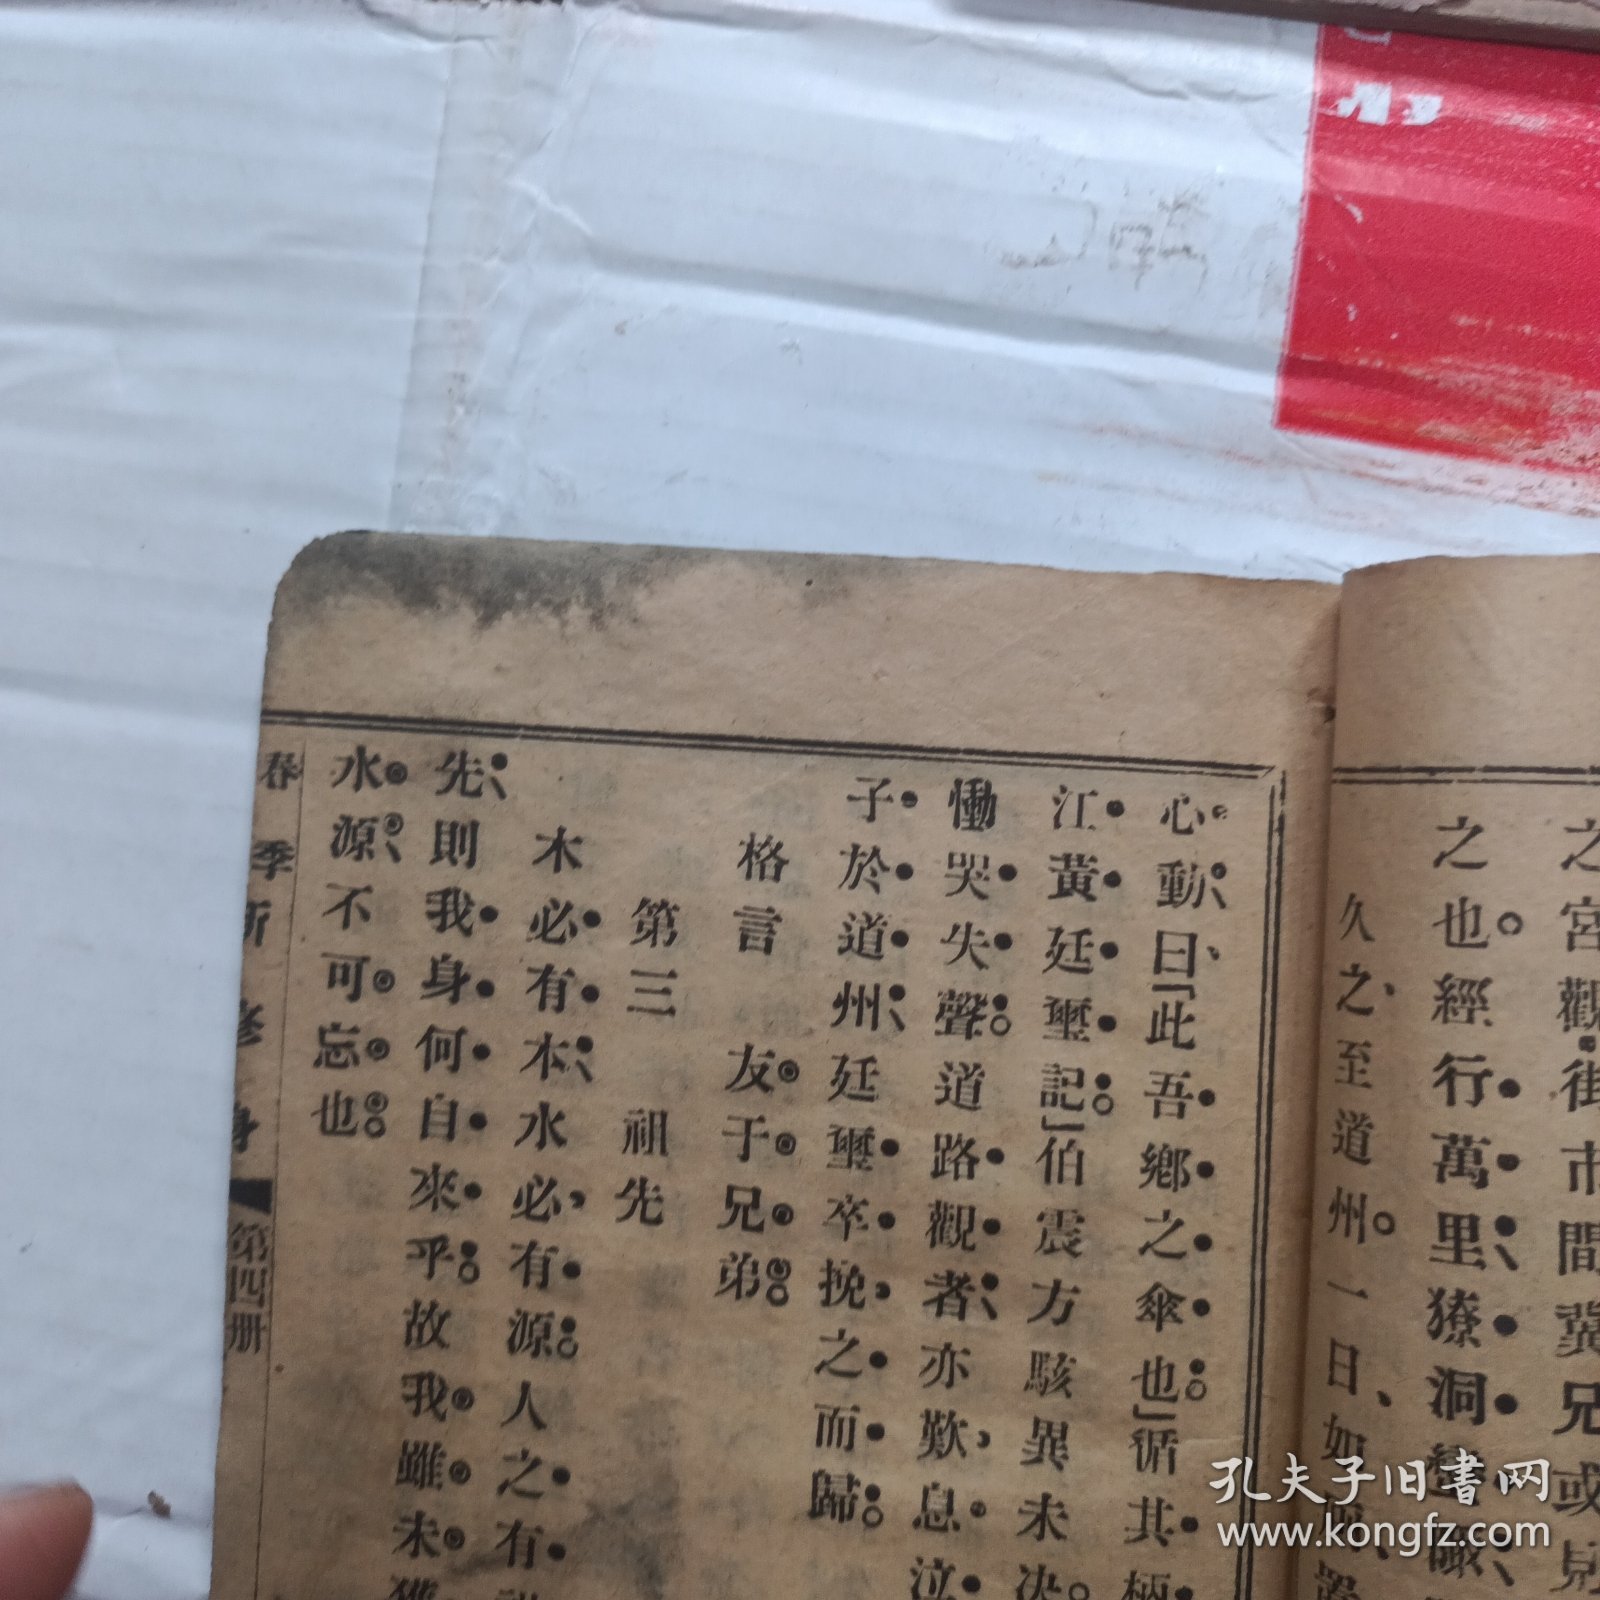 之宮觀街市間冀兄或
之也。經行萬里、獠洞
久之、至道州。一日、如
心動、曰、「此吾鄉之傘也。」循其柄
江黃廷璽記。」伯震方駭異未決。
慟哭失聲。道路觀者、亦歎息泣
子於道州、廷璽卒挽之而歸。
格言 友于兄弟。
第三 祖先
木必有本、水必有源。人之有
先、則我身何自來乎。故我雖未
水源、不可忘也。
春季新修身 第四册
孔夫子旧書网
www.kongfz.com